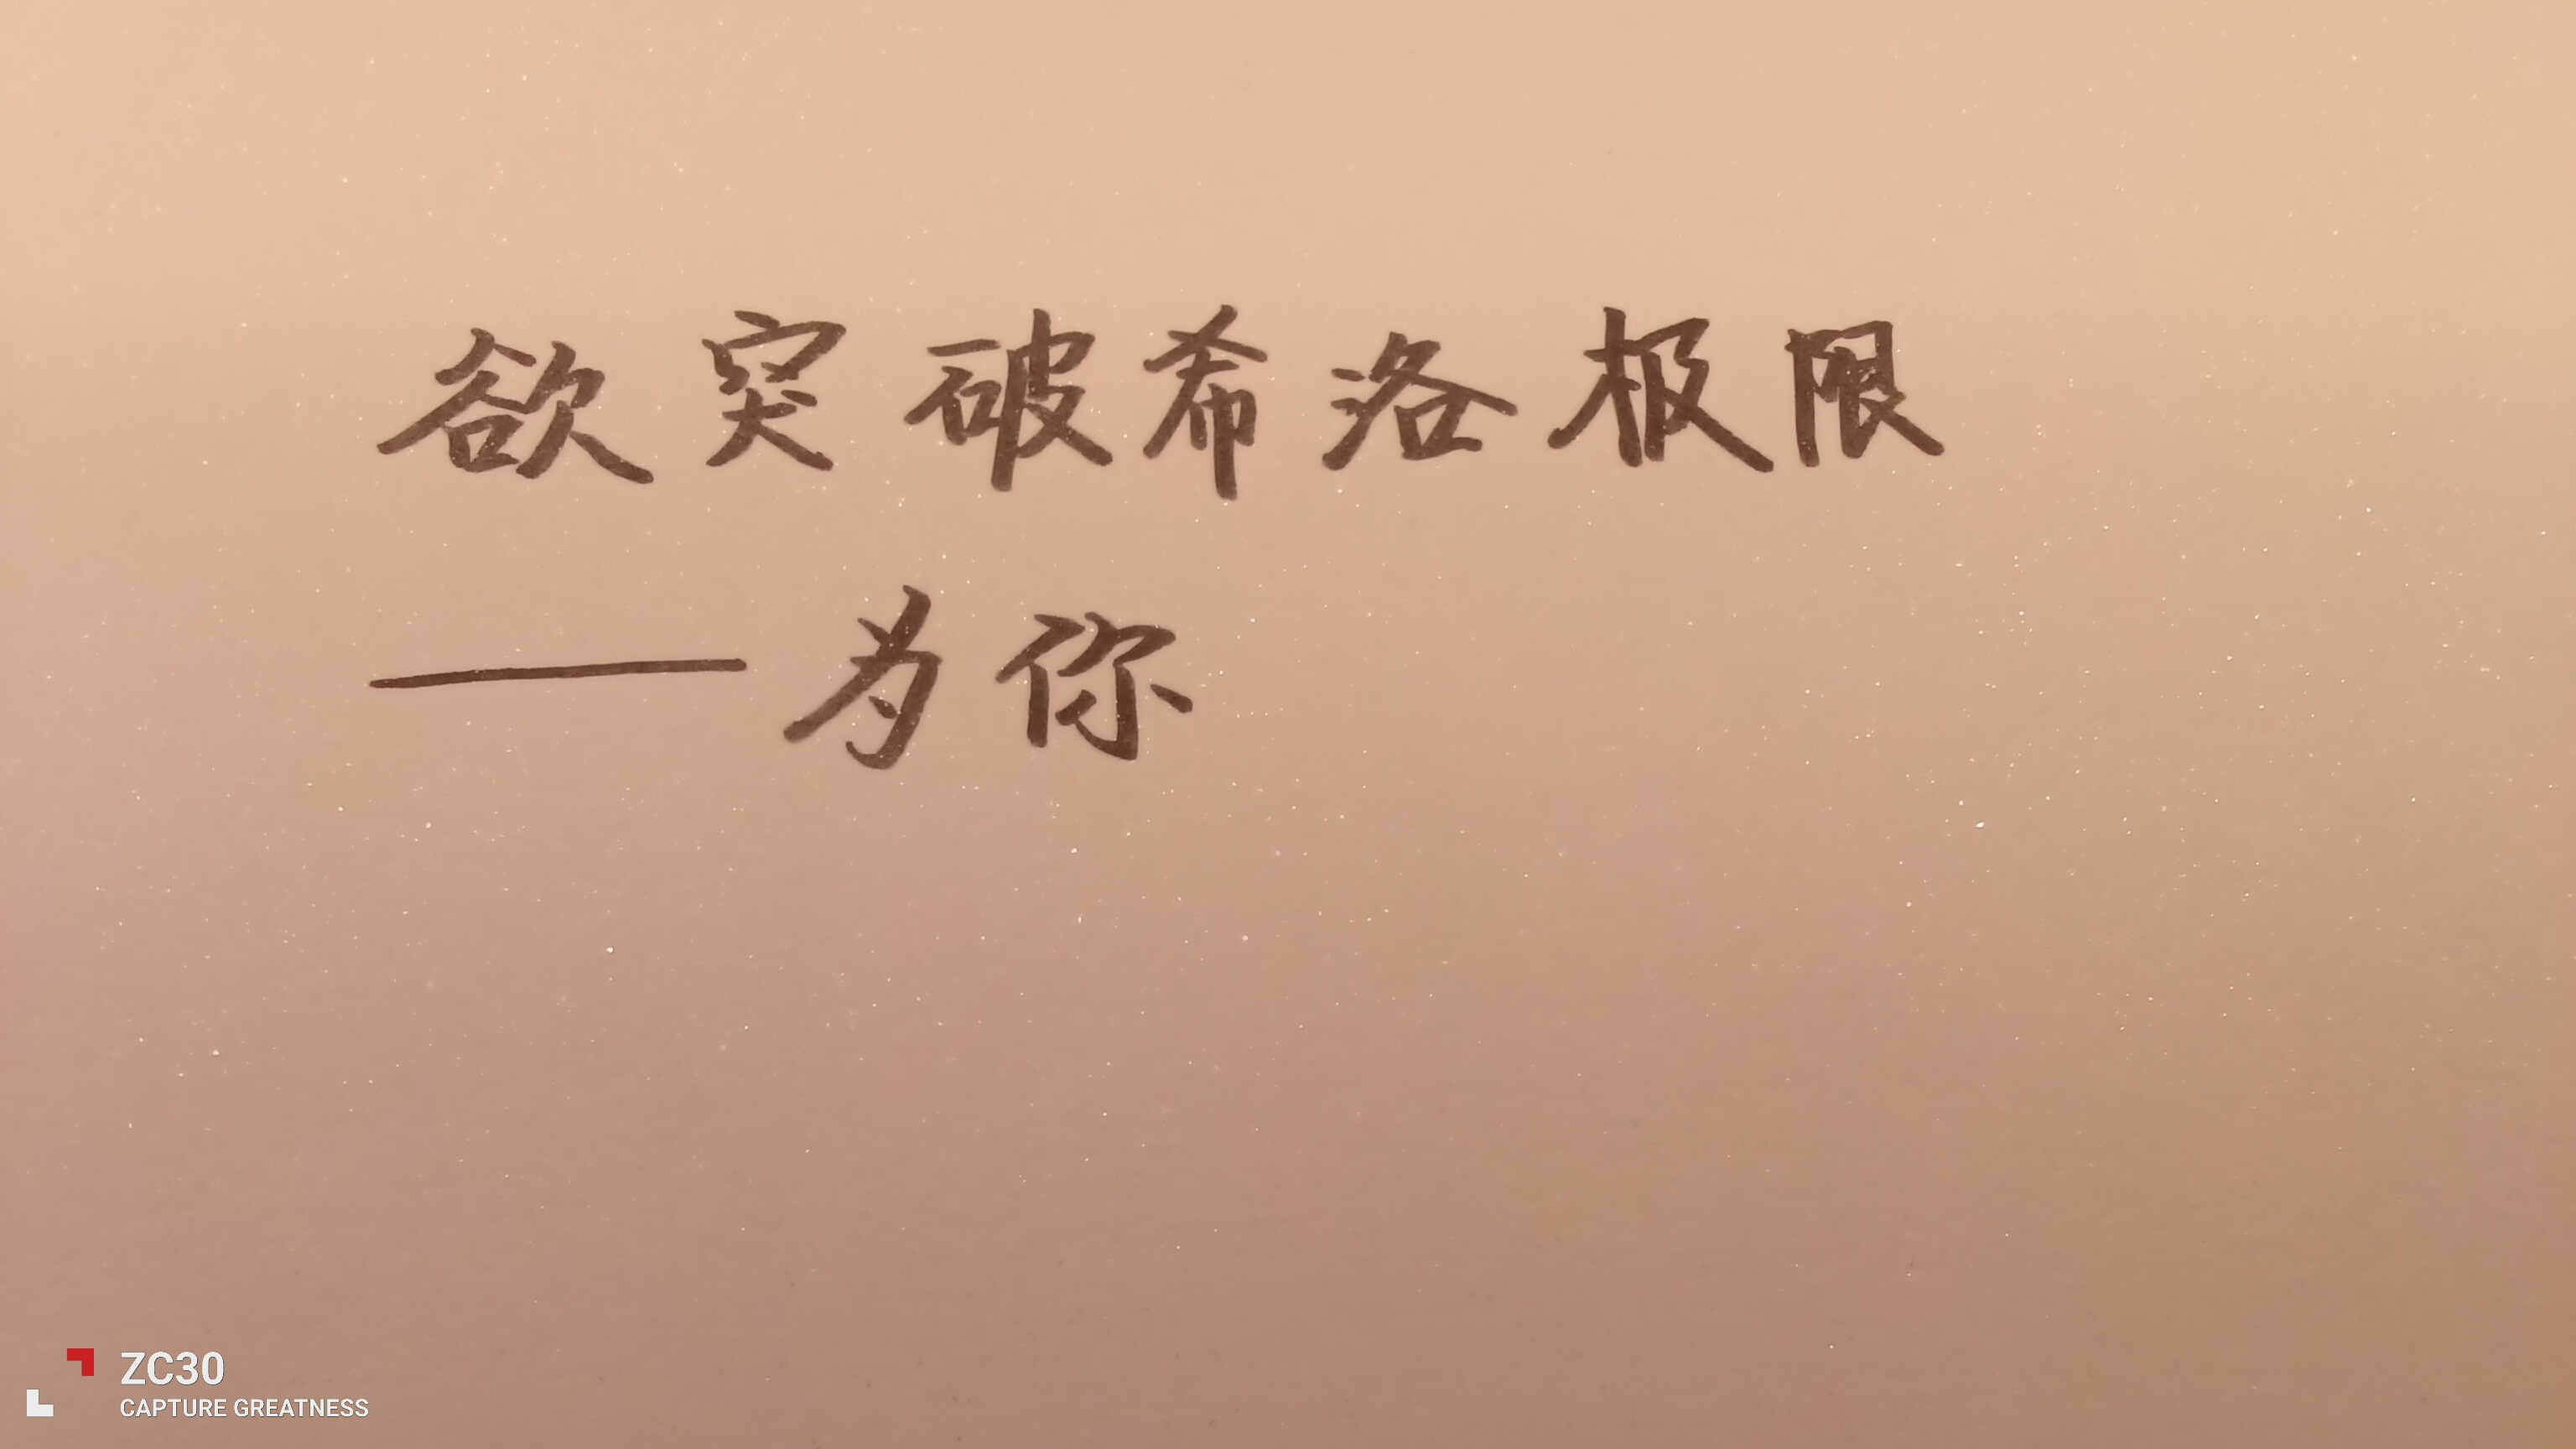 欲突破希洛极限
——为你
ZC30
CAPTURE GREATNESS